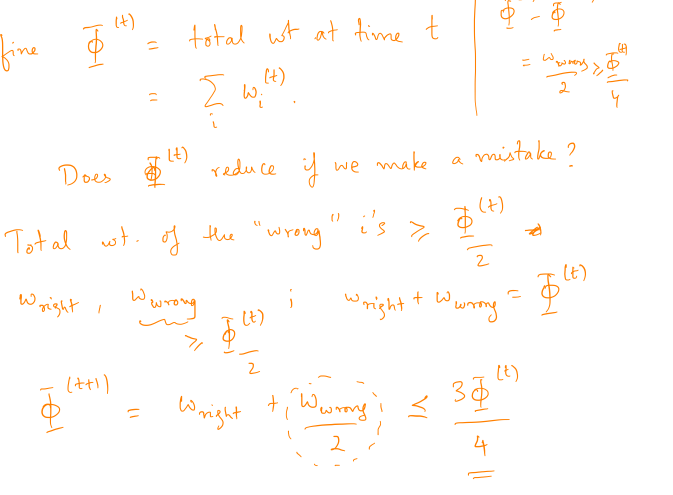 fine Φ^(t) = total wt at time t
= Σ_i w_i^(t).
Φ - Φ
= w_wrong/2 ≥ Φ^(t)/4
Does Φ^(t) reduce if we make a mistake?
Total wt. of the "wrong" i's ≥ Φ^(t)/2
w_right , w_wrong ≥ Φ^(t)/2 ; w_right + w_wrong = Φ^(t)
Φ^(t+1) = w_right + w_wrong/2 ≤ 3Φ^(t)/4